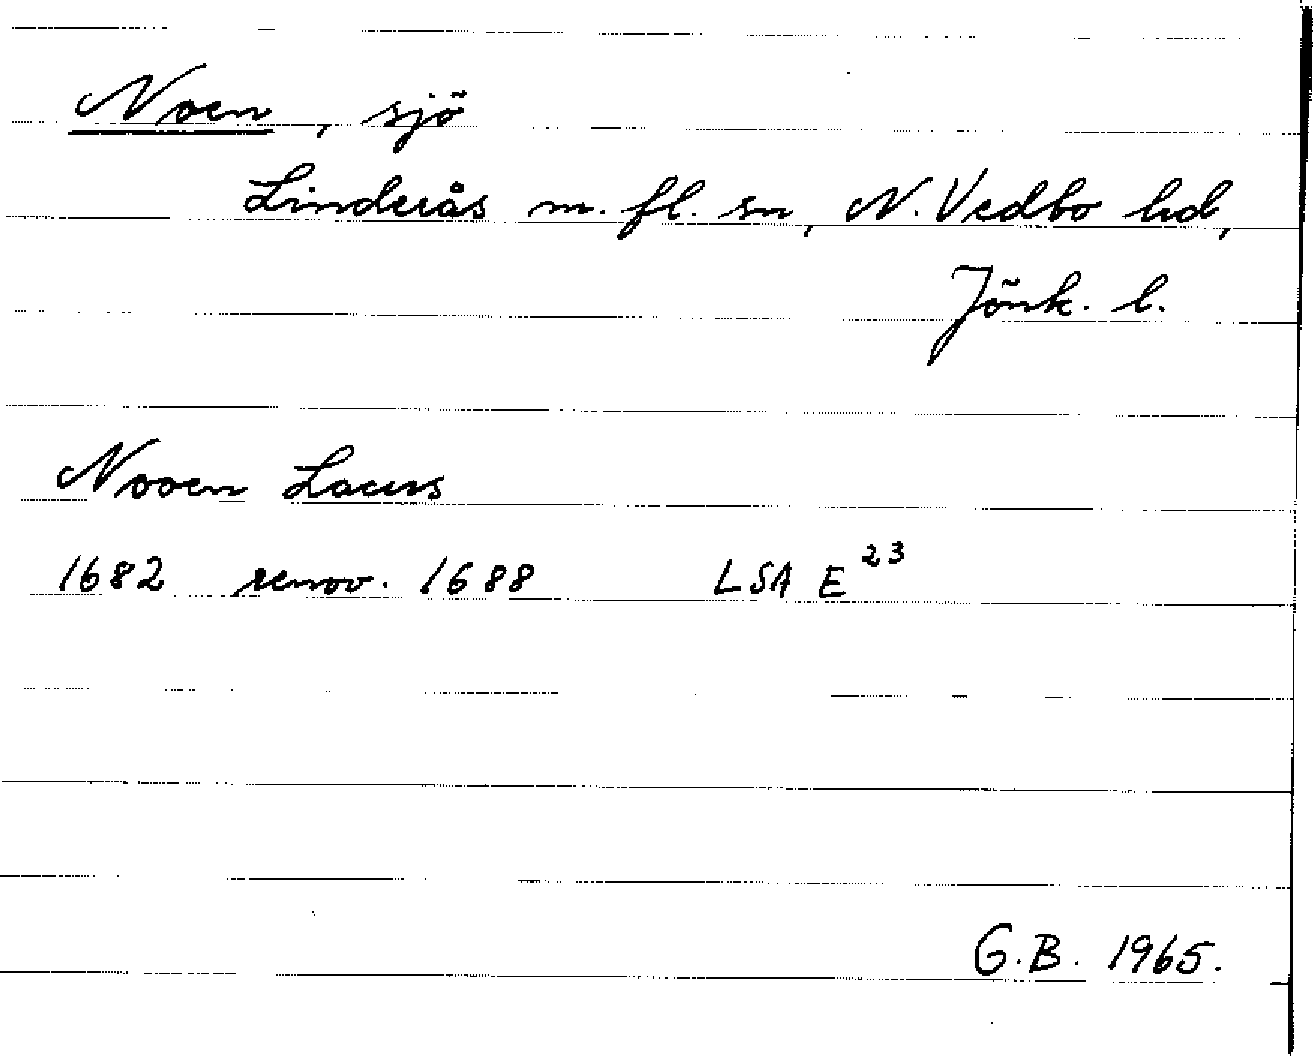 Noen, sjö
Linderås m. fl. sn, N. Vedbo hd,
Jönk. l.
Nooen Lacus
1682 renov. 1688 LSA E²³
G.B. 1965.